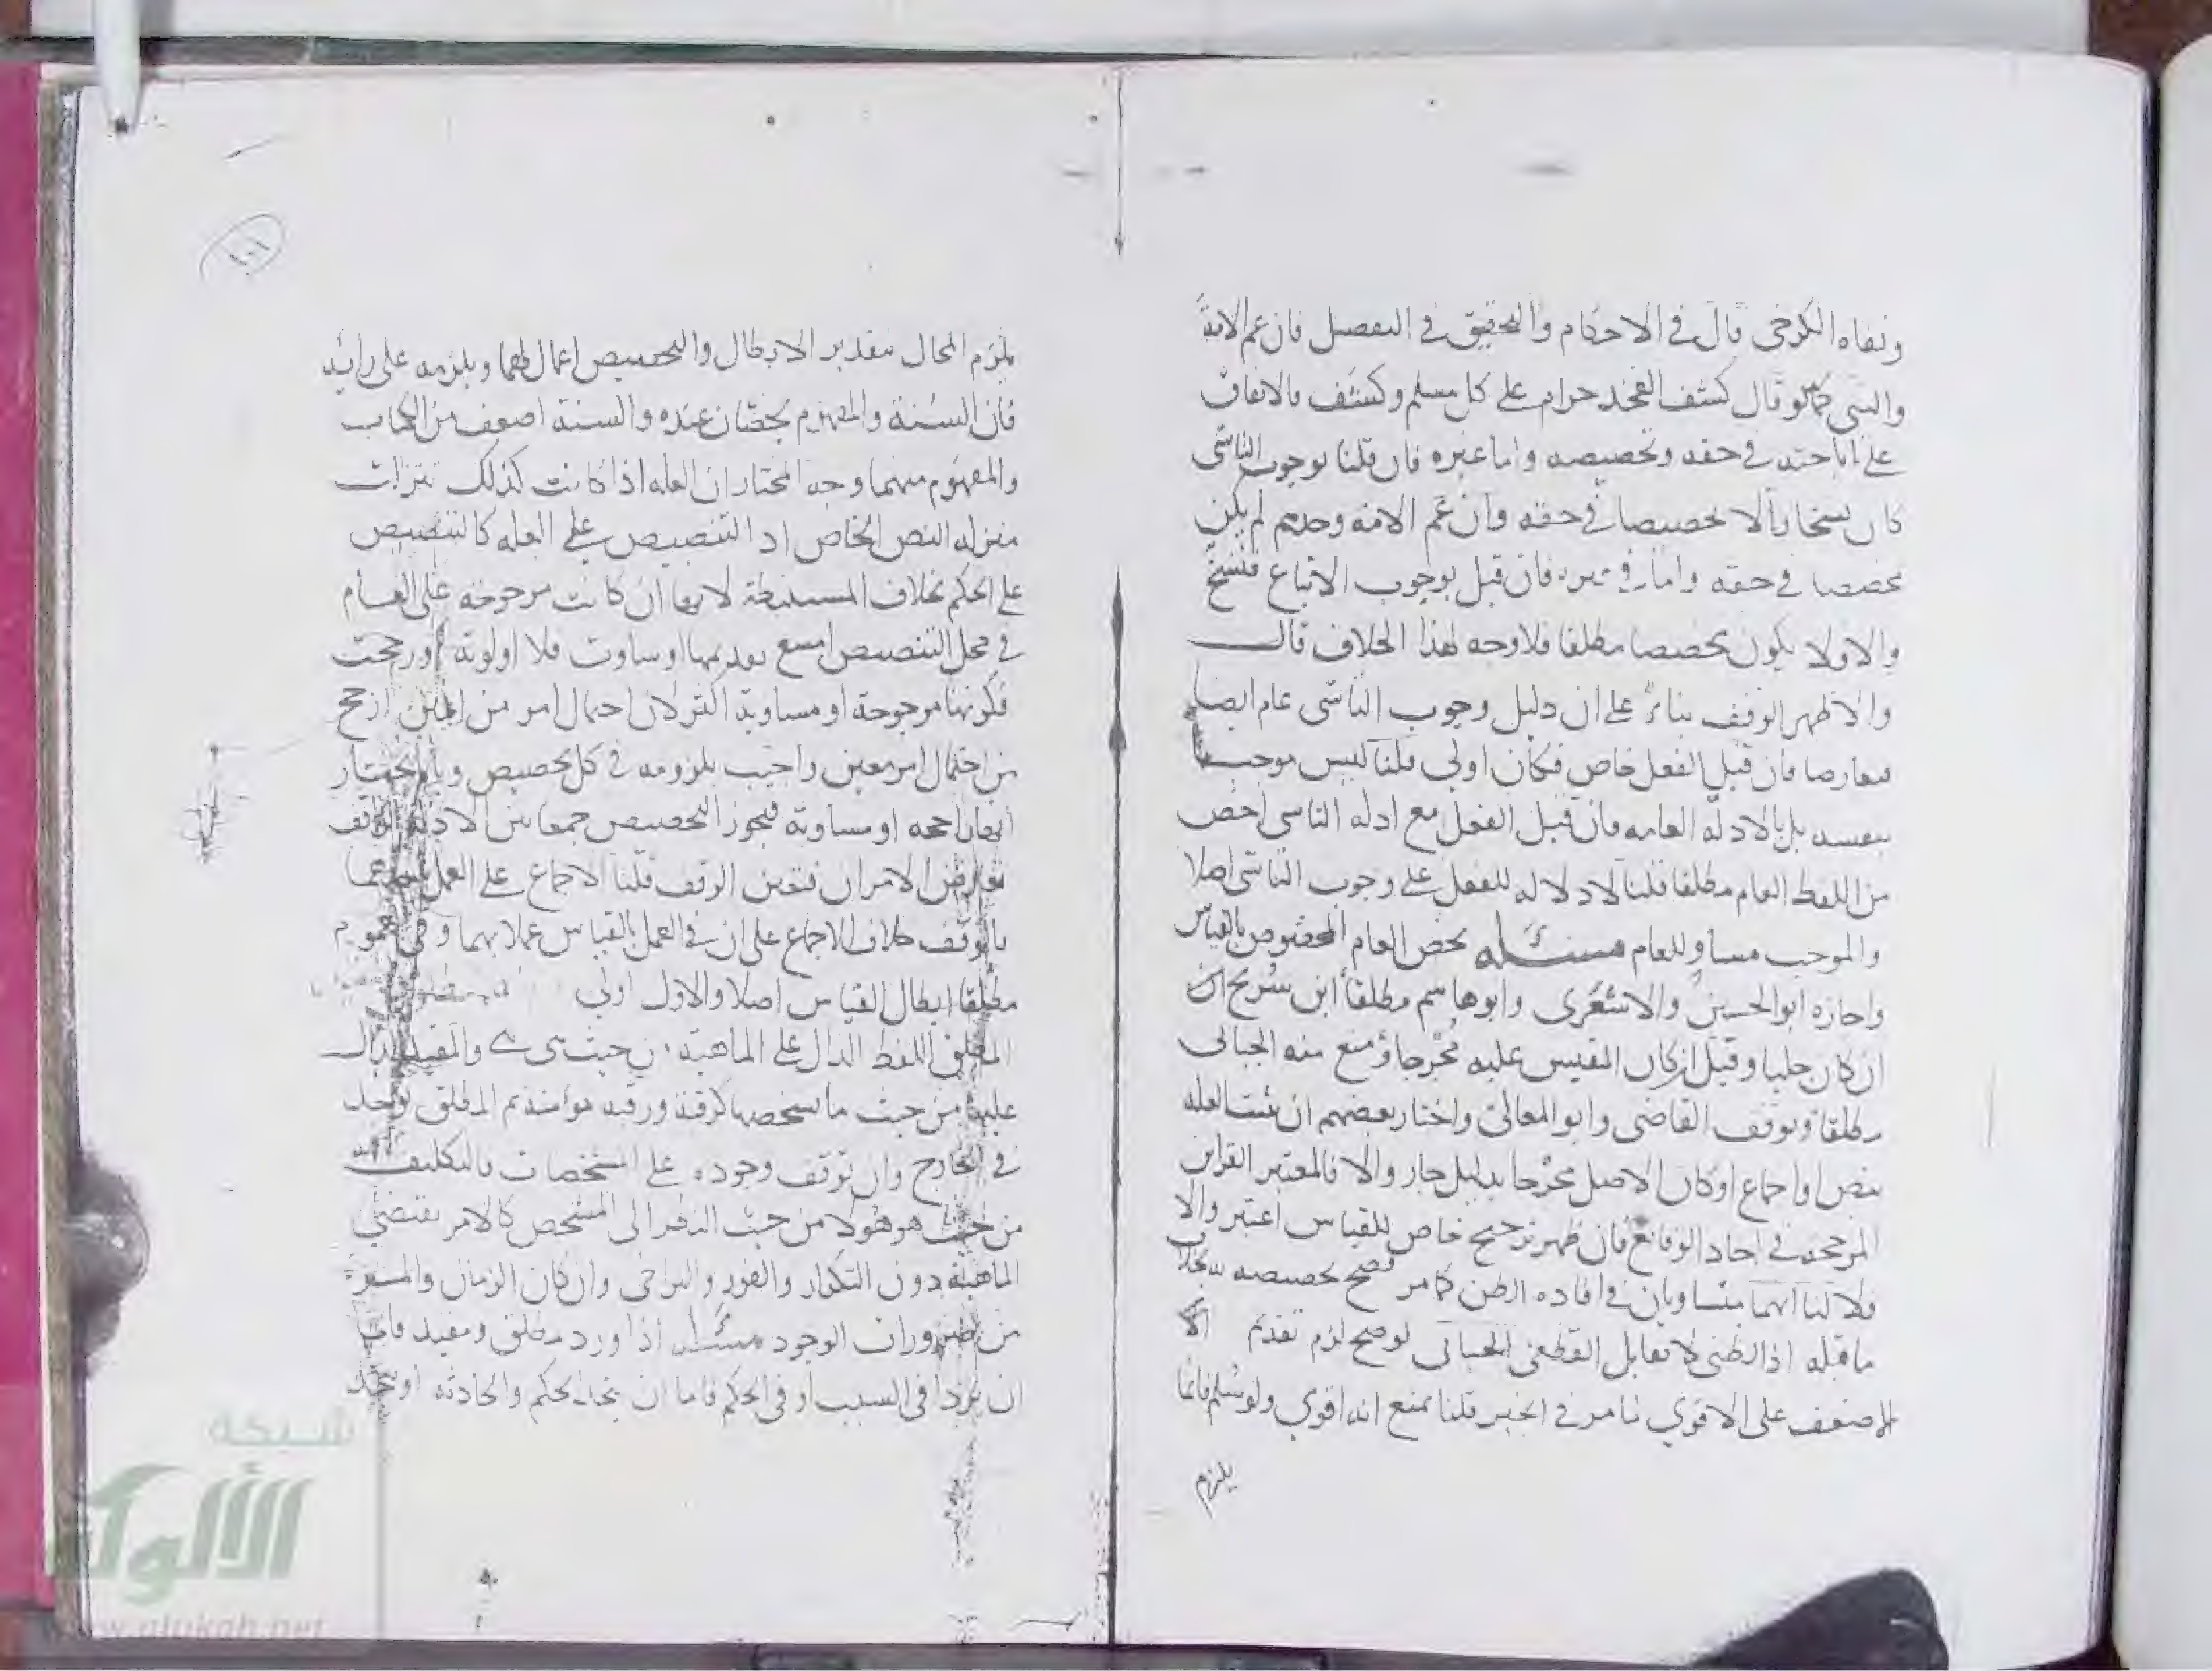 ونفاه الكرخي قال في الاحكام والتحقيق في التفصيل فان عم الامة
والنبي كما لو قال كشف الفخذ حرام على كل مسلم وكشف فالاتفاق
على اباحته في حقه وتخصيصه واما غيره فان قلنا بوجوب التاسي
كان نسخا والا تخصيصا في حقه وان عم الامة وحدهم لم يكن
تخصيصا في حقه واما في غيره فان قيل بوجوب الاتباع فنسخ
والاولا يكون تخصيصا مطلقا فلا وجه لهذا الخلاف قال
والاظهر الوقف بناء على ان دليل وجوب التاسي عام ايضا
فتعارضا فان قيل الفعل خاص فكان اولى قلنا ليس موجبا
بنفسه بل بالادلة العامه فان قيل الفعل مع ادله التاسي اخص
من اللفظ العام مطلقا قلنا لا دلاله للفعل على وجوب التاسي اصلا
والموجب مساو للعام مسئله يخص العام المخصوص بالقياس
واجازه ابو الحسين والاشعري وابو هاشم مطلقا ابن سريج ان
ان كان جليا وقيل ان كان المقيس عليه مخرجا ومنع منه الجبائي
مطلقا وتوقف القاضي وابو المعالي واختار بعضهم ان ثبتت العله
بنص او اجماع او كان الاصل مخرجا بدليل جاز والا فالمعتبر القراين
المرجحه في احاد الوقائع فان ظهر ترجيح خاص للقياس اعتبر والا
فلا لنا انهما متساويان في افاده الظن كما مر فصح تخصيصه به بخلاف
ما قبله اذ الظني لا يقابل القطعي الجبائي لو صح لزم تقديم
الاضعف على الاقوي كما مر في الخبر قلنا نمنع انه اقوي ولو سلم فانما
يلزم
١٠١
يلزم المحال بتقدير الابطال والتخصيص اعمال لهما ويلزمه على رائه
فان السنة والمفهوم يخصان عنده والسنة اضعف من الكتاب
والمفهوم منهما وجه المختار ان العله اذا كانت كذلك تنزلت
منزله النص الخاص اذ التنصيص على العله كالتنصيص
على الحكم بخلاف المستنبطة لانها ان كانت مرجوحة على العام
في محل التخصيص امتنع تقديمها او ساوت فلا اولوية او رجحت
فكونها مرجوحة او مساوية اكثر لان احتمال امر من امرين ارجح
من احتمال امر معين واجيب بلزومه في كل تخصيص وبانا نختار
انها راجحه او مساوية فيجوز التخصيص جمعا بين الادلة الوقف
تعارض الامران فتعين الوقف قلنا الاجماع على العمل باحدهما
فالوقف خلاف الاجماع على ان في العمل بالقياس عملا بهما وفي العموم
مطلقا ابطال القياس اصلا والاول اولى
المطلق اللفظ الدال على الماهية من حيث هي هي والمقيد الدال
عليها من حيث ما يشخصها كرقبة ورقبه مؤمنة ثم المطلق يوجد
في الخارج وان توقف وجوده على المشخصات فالتكليف
من حيث هو هو لا من حيث النظر الى المشخص كالامر يقتضي
الماهية دون التكرار والفور والتراخي وان كان الزمان والمرة
من ضرورات الوجود مسئله اذا ورد مطلق ومقيد فاما
ان يردا في السبب او في الحكم فاما ان يتحد الحكم والحادثه او يتحد
شبكة
الألوكة
www.alukah.net